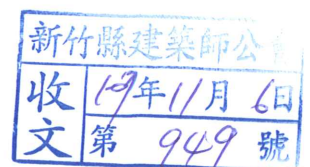 新竹縣建築師公會
收文 109年11月6日
第 949 號